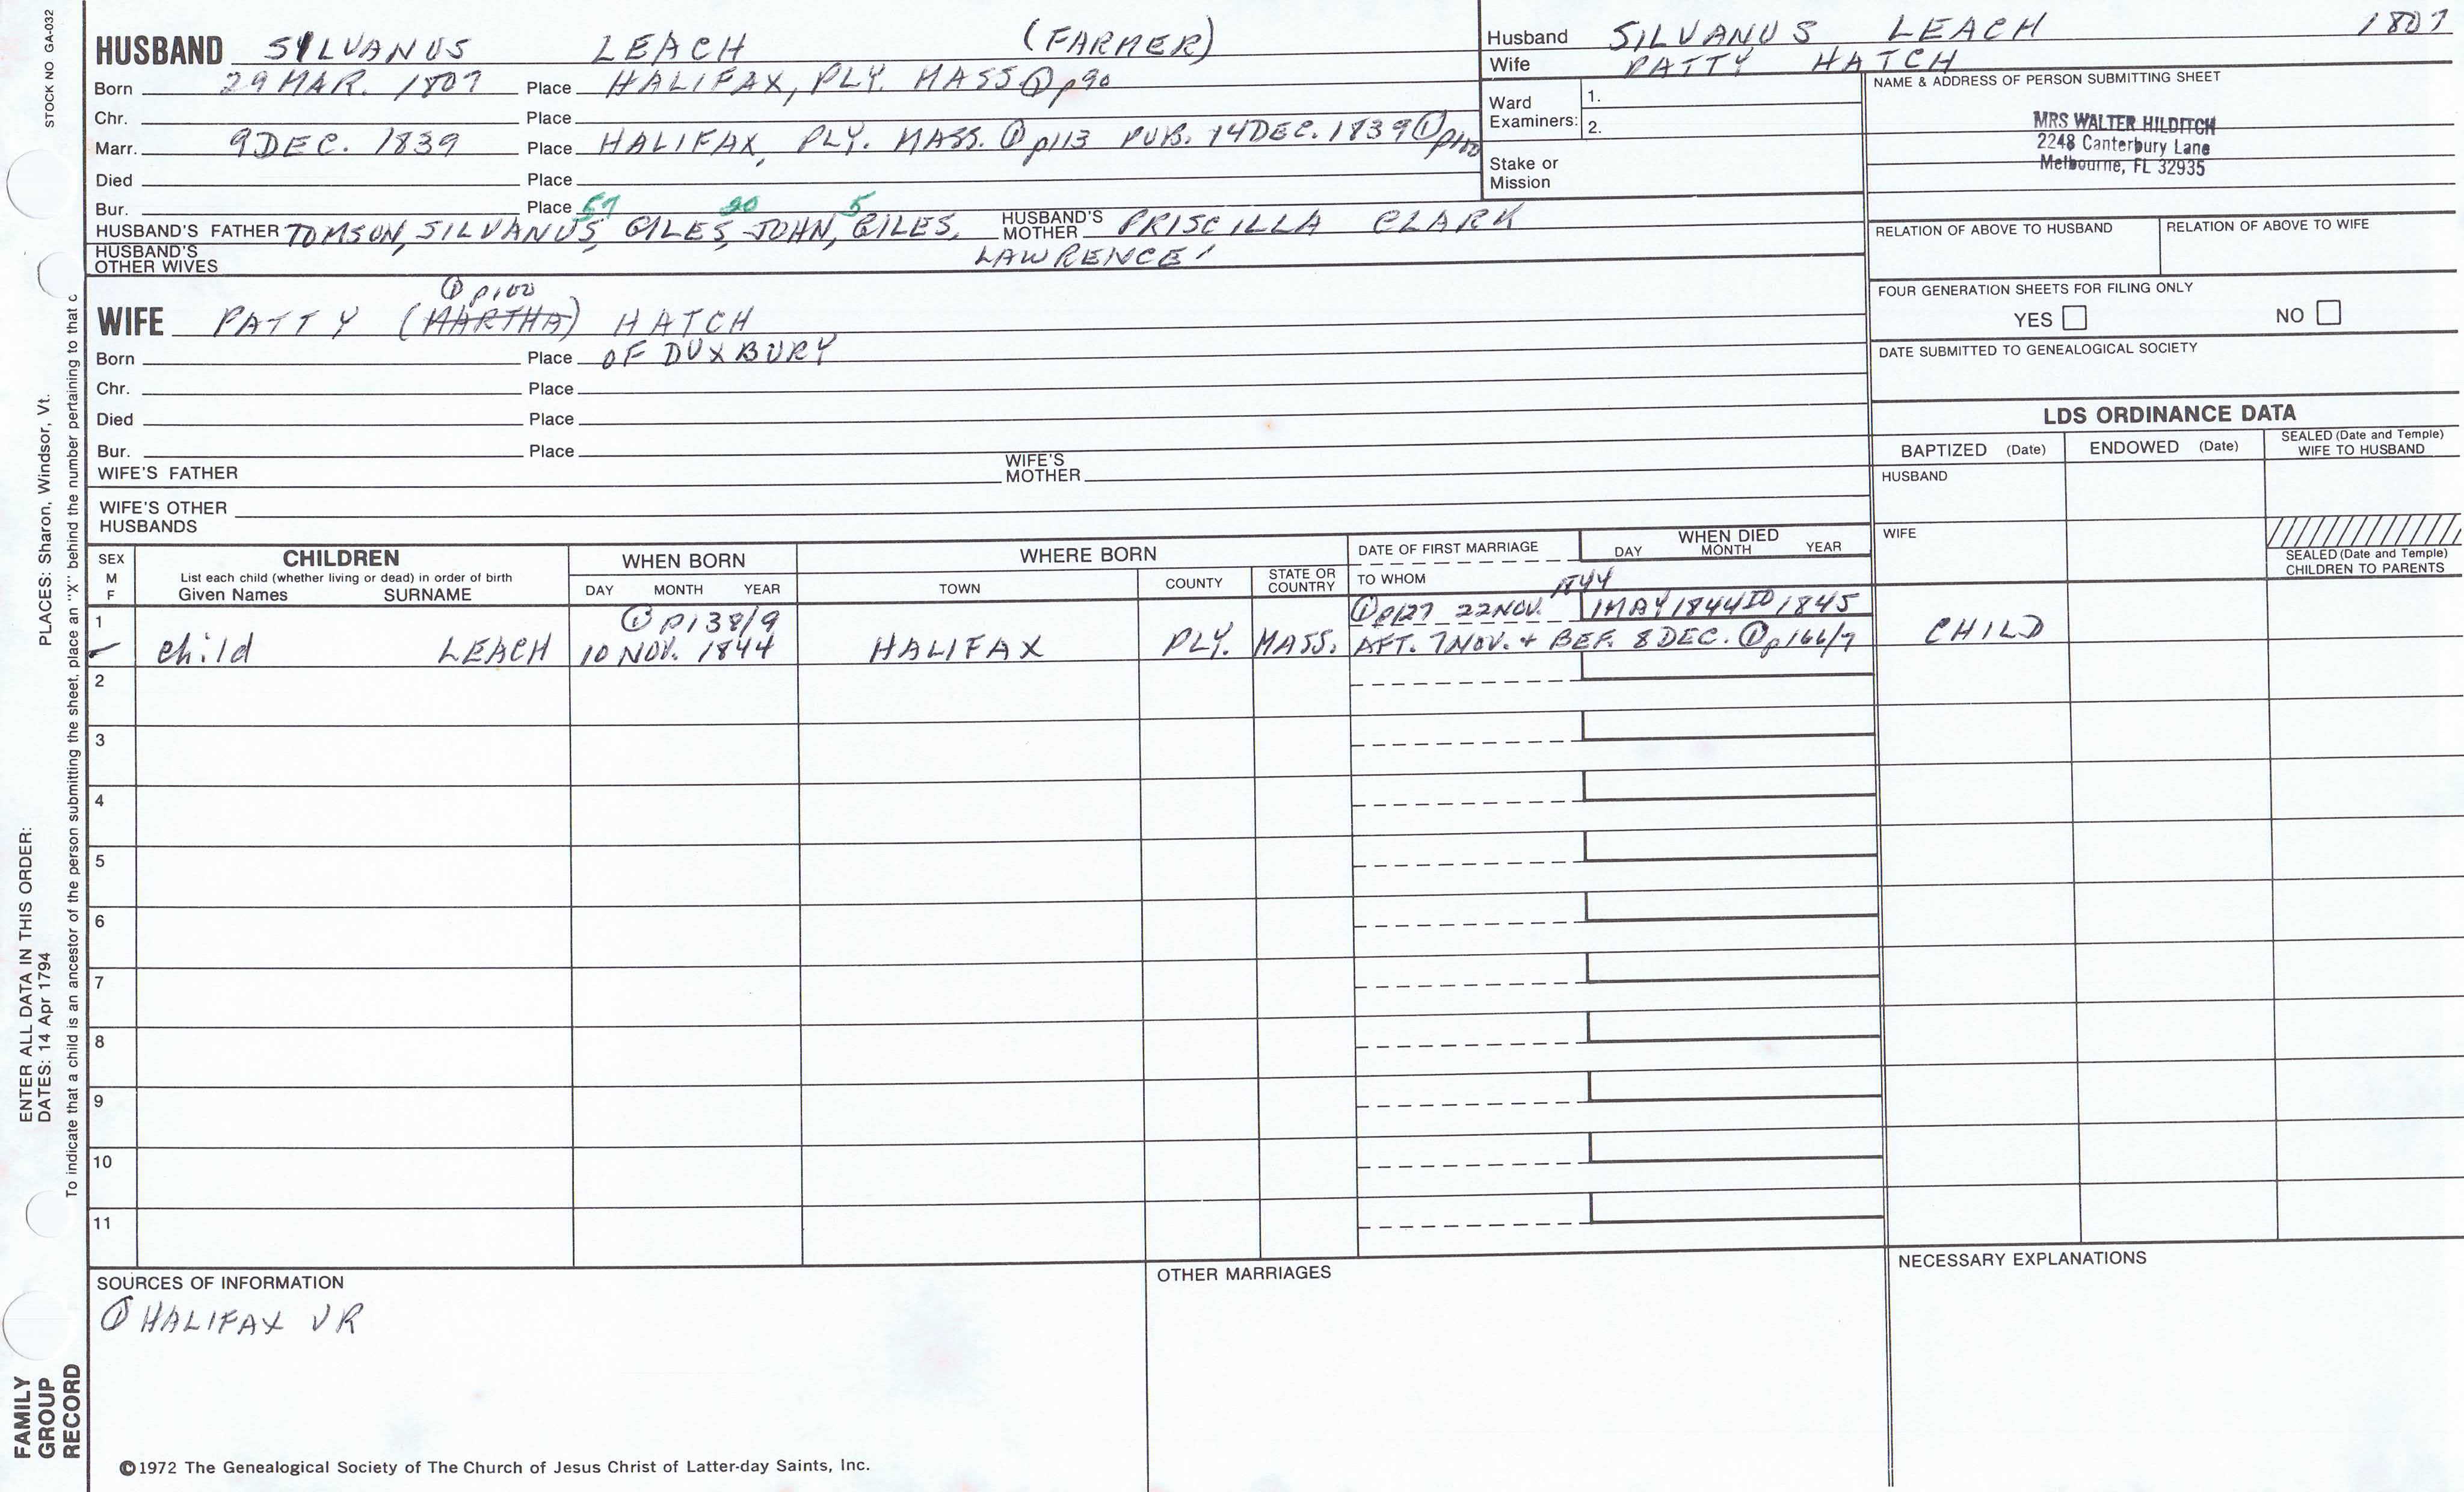 STOCK NO GA-032
HUSBAND SYLVANUS LEACH (FARMER)
Born 29 MAR. 1807 Place HALIFAX, PLY. MASS ① p90
Chr. Place
Marr. 9 DEC. 1839 Place HALIFAX, PLY. MASS. ① p113 PUB. 14 DEC. 1839 ① p100
Died Place
Bur. Place 57 20 5
HUSBAND'S FATHER TOMSON, SILVANUS, GILES, JOHN, GILES, HUSBAND'S MOTHER PRISCILLA CLARK
HUSBAND'S OTHER WIVES LAWRENCE
Husband SILVANUS LEACH 1807
Wife PATTY HATCH
Ward Examiners: 1.
2.
Stake or Mission
NAME & ADDRESS OF PERSON SUBMITTING SHEET
MRS WALTER HILDITCH
2248 Canterbury Lane
Melbourne, FL 32935
RELATION OF ABOVE TO HUSBAND RELATION OF ABOVE TO WIFE
FOUR GENERATION SHEETS FOR FILING ONLY
YES NO
DATE SUBMITTED TO GENEALOGICAL SOCIETY
① p100
WIFE PATTY (MARTHA) HATCH
Born Place OF DUXBURY
Chr. Place
Died Place
Bur. Place
WIFE'S FATHER WIFE'S MOTHER
WIFE'S OTHER HUSBANDS
LDS ORDINANCE DATA
BAPTIZED (Date) ENDOWED (Date) SEALED (Date and Temple) WIFE TO HUSBAND
HUSBAND
WIFE
SEALED (Date and Temple) CHILDREN TO PARENTS
SEX M F
CHILDREN
List each child (whether living or dead) in order of birth
Given Names SURNAME
WHEN BORN
DAY MONTH YEAR
WHERE BORN
TOWN COUNTY STATE OR COUNTRY
DATE OF FIRST MARRIAGE
TO WHOM
WHEN DIED
DAY MONTH YEAR
1844
1 ① p138/9 ① p127 22 NOV. 1 MAY 1844 TO 1845
child LEACH 10 NOV. 1844 HALIFAX PLY. MASS. AFT. 7 NOV. + BEF. 8 DEC. ① p166/7 CHILD
2
3
4
5
6
7
8
9
10
11
SOURCES OF INFORMATION
① HALIFAX VR
OTHER MARRIAGES
NECESSARY EXPLANATIONS
©1972 The Genealogical Society of The Church of Jesus Christ of Latter-day Saints, Inc.
FAMILY GROUP RECORD
ENTER ALL DATA IN THIS ORDER:
DATES: 14 Apr 1794
PLACES: Sharon, Windsor, Vt.
To indicate that a child is an ancestor of the person submitting the sheet, place an "X" behind the number pertaining to that c